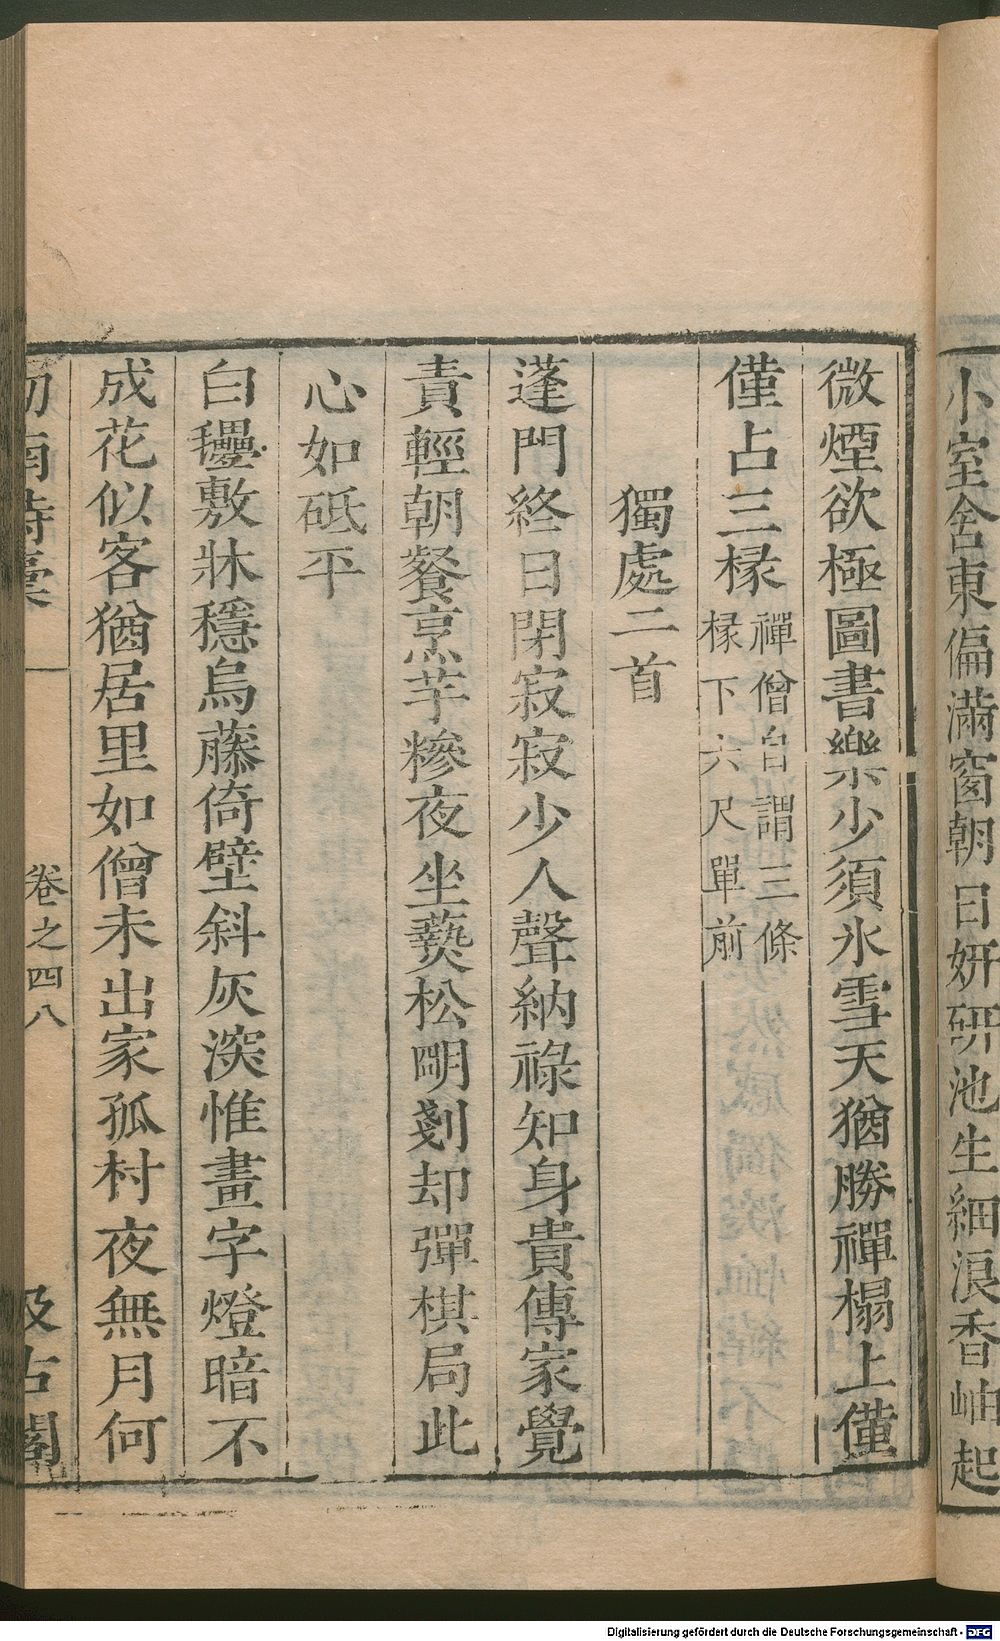 小室舍東偏滿窗朝日妍研池生細浪香岫起
微煙欲極圖書樂少須氷雪天猶勝禪榻上僅
僅占三椽禪僧自謂三條
椽下六尺單前
獨處二首
蓬門終日閉寂寂少人聲納祿知身貴傳家覺
責輕朝餐烹芋糝夜坐爇松明剗却彈棋局此
心如砥平
白氎敷牀穩烏藤倚壁斜灰深惟畫字燈暗不
成花似客猶居里如僧未出家孤村夜無月何
劒南詩稾
卷之四八
汲古閣
Digitalisierung gefördert durch die Deutsche Forschungsgemeinschaft - DFG